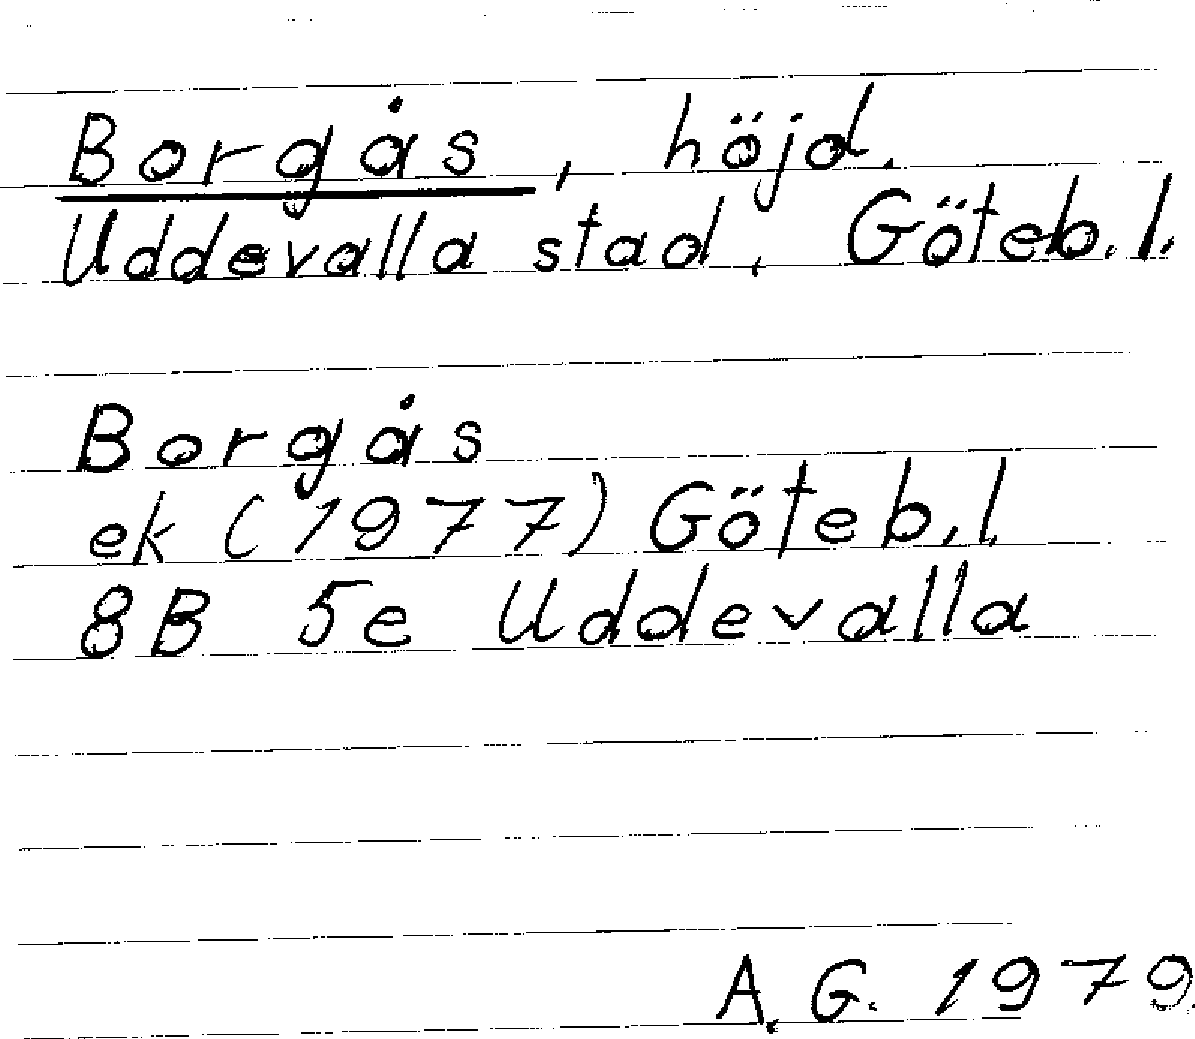 Borgås, höjd.
Uddevalla stad, Göteb.l.
Borgås
ek (1977) Göteb.l.
8B 5e Uddevalla
A.G. 1979.